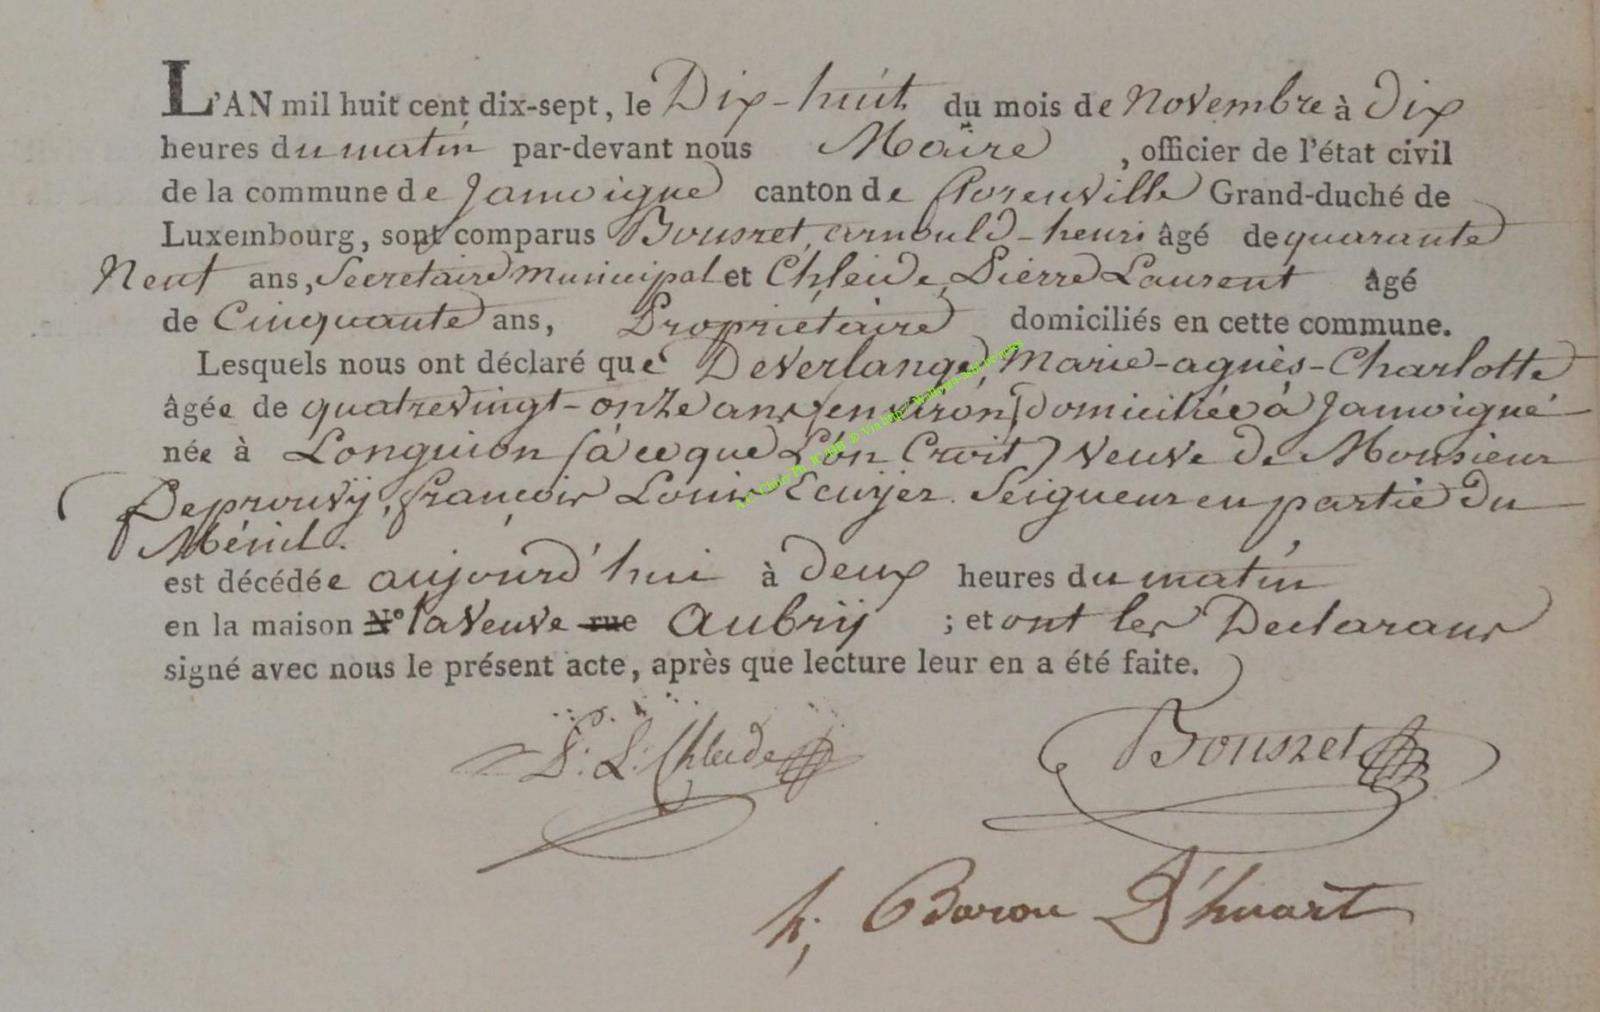 L'AN mil huit cent dix-sept, le Dix-huit du mois de Novembre à Dix
heures du matin par-devant nous Maire, officier de l'état civil
de la commune de Jamoigne canton de florenville Grand-duché de
Luxembourg, sont comparus Bousret, arnould-henri âgé de quarante
Neuf ans, Secretaire municipal et Chleide, Pierre Laurent âgé
de Cinquante ans, Propriétaire domiciliés en cette commune.
Lesquels nous ont déclaré que Deverlange, Marie-agnès-Charlotte
âgée de quatrevingt-onze ans (environ) domiciliée à Jamoigne
née à Longuion (à ce que L'on Croit) veuve de Monsieur
Deprouvÿ, françois Louis Ecuÿer Seigneur en partie du
Ménil.
est décédée aujourd'hui à deux heures du matin
en la maison N° la veuve rue Aubrÿ ; et ont les Declarans
signé avec nous le présent acte, après que lecture leur en a été faite.
P. L. Chleide Bousret
h; Baron D'huart